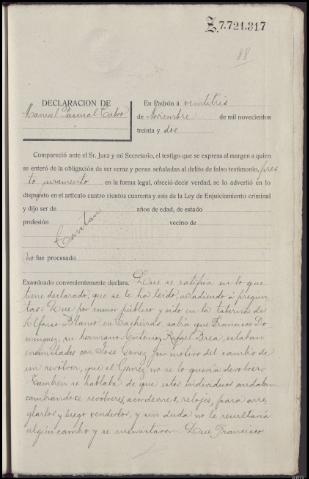 Z.7.721.317
88
DECLARACION DE
Manuel Pascual
En Padrón á veintitrés
de Noviembre de mil novecientos
treinta y dos
Compareció ante el Sr. Juez y mi Secretario, el testigo que se expresa al margen a quien
se enteró de la obligación de ser veraz y penas señaladas al delito de falso testimonio, pres
tó juramento en la forma legal, ofreció decir verdad, se le advertió en lo
dispuesto en el artículo cuatro cientos cuarenta y seis de la Ley de Enjuiciamiento criminal
y dijo ser de años de edad, de estado
profesión vecino de
Constan
ha sido procesado
Examinado convenientemente declara: Que se ratifica en lo que
tiene declarado, que se le ha leído, añadiendo á pregun
tas: Que por rumor público y aún en la taberna de
Blanco en sabía que Francisco Do
minguez, su hermano Antonio, Rafael Brea, estaban
enemistados con José Ganes, por motivo del cambio de
un revólver, que el Ganes no le quería devolver.
Tambien se hablaba de que estos individuos andaban
cambiando revólveres, acordeones, relojes, para arre
glarlos y luego venderlos, y sin duda no le resultaría
algún cambio y se enemistaron. Que Francisco